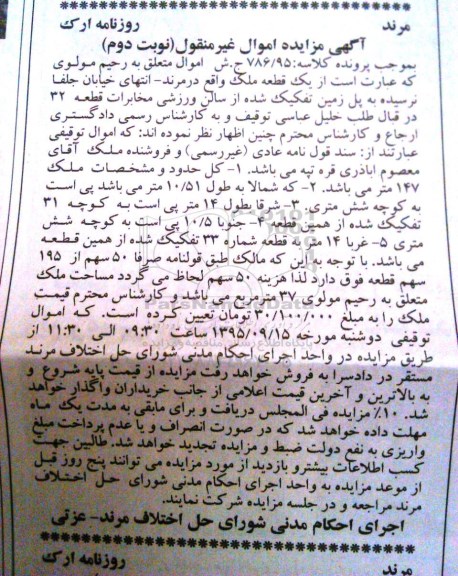 مرند
روزنامه ارک
آگهی مزایده اموال غیرمنقول(نوبت دوم)
بموجب پرونده کلاسه:۷۸۶/۹۵ ج.ش اموال متعلق به رحیم مولوی
که عبارت است از یک قطعه ملک واقع درمرند- انتهای خیابان جلفا
نرسیده به پل زمین تفکیک شده از سالن ورزشی مخابرات قطعه ۳۲
در قبال طلب خلیل عباسی توقیف و به کارشناس رسمی دادگستری
ارجاع و کارشناس محترم چنین اظهار نظر نموده اند: که اموال توقیفی
عبارتند از: سند قول نامه عادی (غیررسمی) و فروشنده ملک آقای
معصوم اباذری قره تپه می باشد. ۱- کل حدود و مشخصات ملک
۱۴۷ متر می باشد. ۲- که شمالا به طول ۱۰/۵۱ متر می باشد پی است
به کوچه شش متری. ۳- شرقا بطول ۱۴ متر پی است به کوچه ۳۱
تفکیک شده از همین قطعه ۴- جنوبا ۱۰/۵ پی است به کوچه شش
متری ۵- غربا ۱۴ متر به قطعه شماره ۳۳ تفکیک شده از همین قطعه
می باشد. با توجه به این که مالک طبق قولنامه صرفا ۵۰ سهم از ۱۹۵
سهم قطعه فوق دارد لذا هزینه ۵۰ سهم لحاظ می گردد مساحت ملک
متعلق به رحیم مولوی ۳۷ مترمربع می باشد و کارشناس محترم قیمت
ملک را به مبلغ ۳۰/۱۰۰/۰۰۰ تومان تعیین کرده است. که اموال
توقیفی دوشنبه مورخه ۱۳۹۵/۰۹/۱۵ ساعت ۰۹:۳۰ الی ۱۱:۳۰ از
طریق مزایده در واحد اجرای احکام مدنی شورای حل اختلاف مرند
مستقر در دادسرا به فروش خواهد رفت مزایده از قیمت پایه شروع و
به بالاترین و آخرین قیمت اعلامی از جانب خریداران واگذار خواهد
شد. ۱۰٪ مزایده فی المجلس دریافت و برای مابقی به مدت یک ماه
مهلت داده خواهد شد که در صورت انصراف و یا عدم پرداخت مبلغ
واریزی به نفع دولت ضبط و مزایده تجدید خواهد شد. طالبین جهت
کسب اطلاعات بیشتر و بازدید از مورد مزایده می توانند پنج روز قبل
از موعد مزایده به واحد اجرای احکام مدنی شورای حل اختلاف
مرند مراجعه و در جلسه مزایده شرکت نمایند.
اجرای احکام مدنی شورای حل اختلاف مرند- عزتی
مرند
روزنامه ارک